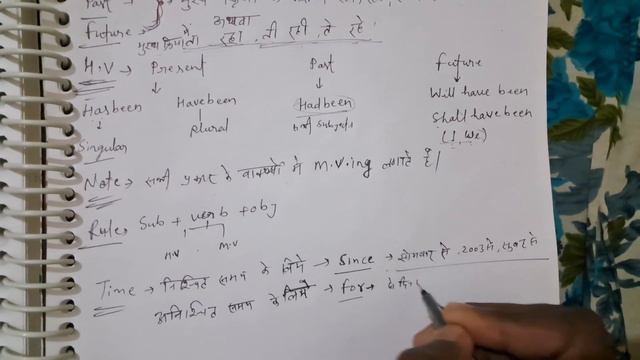 Past →
Future → मुख्य क्रिया में
अथवा
ता रहा, ती रही, ते रहे,
H.V → Present Past future
Has been Have been Had been Will have been
Singular plural सभी subjects Shall have been
(I, we)
Note → सभी प्रकार के वाक्यों में m.v.ing लगाते हैं।
Rule → Sub + verb + obj
H.V M.V
Time → निश्चित समय के लिये → Since → सोमवार से, 2003 से,
अनिश्चित समय के लिये → for →